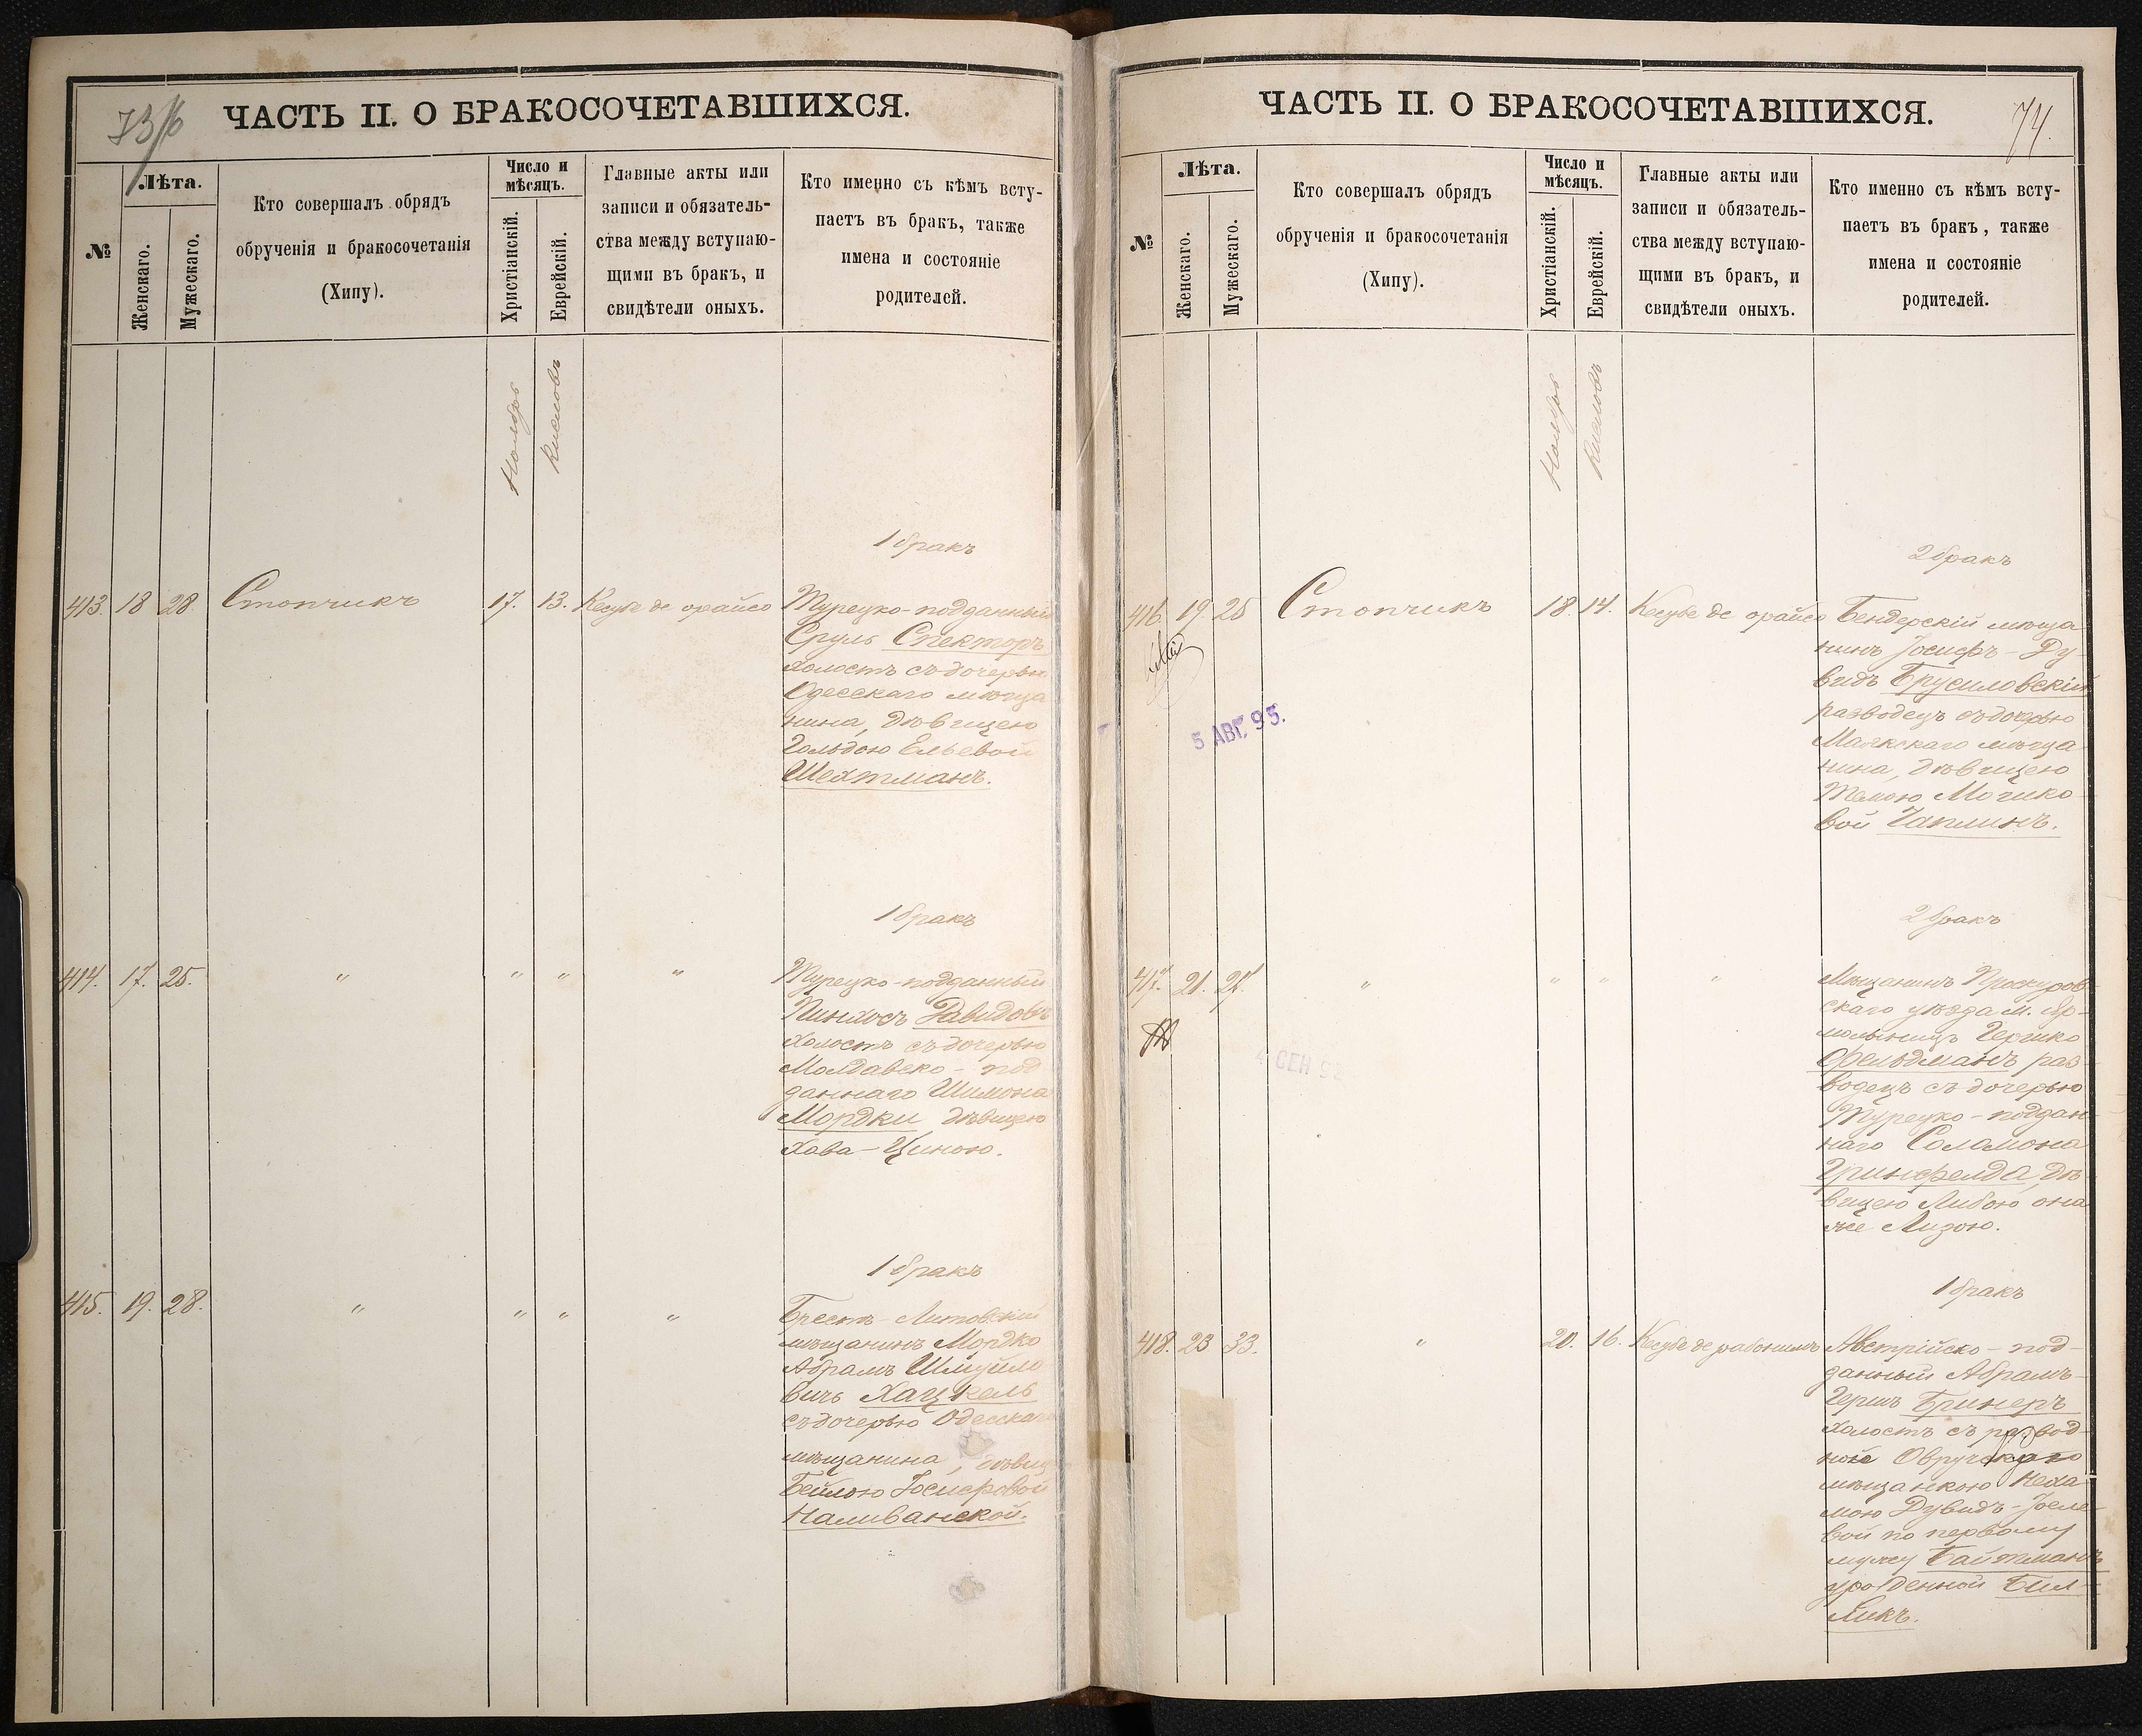 73/б
ЧАСТЬ II. О БРАКОСОЧЕТАВШИХСЯ.
№
Лѣта.
Женскаго.
Мужескаго.
Кто совершалъ обрядъ
обрученія и бракосочетанія
(Хипу).
Число и
мѣсяцъ.
Христіанскій.
Еврейскій.
Главные акты или
записи и обязатель-
ства между вступаю-
щими въ бракъ, и
свидѣтели оныхъ.
Кто именно съ кѣмъ всту-
паетъ въ бракъ, также
имена и состояніе
родителей.
Ноябрь
Кисловъ
1 бракъ
413. 18 28. Стопчикъ 17. 13. Кесубе де орайсо Турецко-подданный
Сруль Спекторъ
холостъ съ дочерью
Одесскаго мѣща
нина, дѣвицею
Гольдою Ельевой
Шехтманъ.
1 бракъ
414. 17. 25. " " " " Турецко-подданный
Пинхосъ Давидовъ
холостъ съ дочерью
Молдавско-под
даннаго Шимона
Мордки дѣвицею
Хава-Циною.
1 бракъ
415. 19. 28. " " " " Брестъ-Литовскій
мѣщанинъ Мордко
Абрамъ Шмуйло
вичъ Хацкель
съ дочерью Одесскаго
мѣщанина, дѣвиц
Бейлою Іосифовой
Наливанской.
74.
ЧАСТЬ II. О БРАКОСОЧЕТАВШИХСЯ.
№
Лѣта.
Женскаго.
Мужескаго.
Кто совершалъ обрядъ
обрученія и бракосочетанія
(Хипу).
Число и
мѣсяцъ.
Христіанскій.
Еврейскій.
Главные акты или
записи и обязатель-
ства между вступаю-
щими въ бракъ, и
свидѣтели оныхъ.
Кто именно съ кѣмъ всту-
паетъ въ бракъ, также
имена и состояніе
родителей.
Ноябрь
Кисловъ
2 бракъ
416. 19. 25 Стопчикъ 18. 14. Кесубе де орайсо Бендерскій мѣща
нинъ Іосифъ-Ду-
видъ Брусиловскій
разводецъ съ дочерью
Маякскаго мѣща
нина, дѣвицею
Темою Мошко
вой Чаплинъ.
5 АВГ. 95.
2 бракъ
417. 21. 27. " " " " Мѣщанинъ Проскуров
скаго уѣзда м. Яр-
молынецъ Гершко
Фельдманъ раз-
водецъ съ дочерью
Турецко-поддан
наго Соломона
Гринфелда, дѣ
вицею Либою она
же Лизою.
4 СЕН 92
1 бракъ
418. 23 33. " 20. 16. Кесубе де рабонимъ Австрійско-под-
данный Абрамъ-
Гершъ Бринеръ
холостъ съ развод-
ной Овручскаго
мѣщанкою Неха
мою Дувидъ-Іосе-
вой по первому
мужу Байтманъ
урожденной Бил-
ликъ.